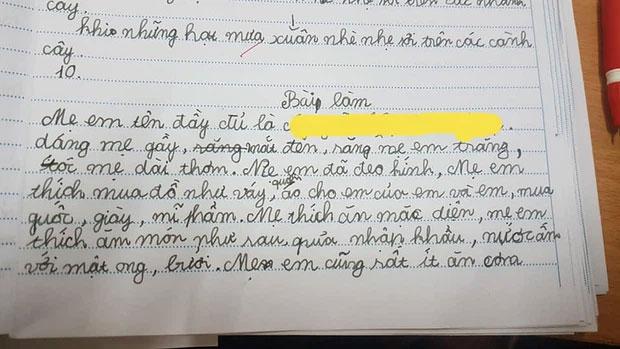 khi những hạt mưa xuân nhì nhẹ rơi trên các cành
cây
10.
Bài làm
Mẹ em tên đầy đủ là
dáng mẹ gầy, mái đen, răng mẹ em trắng,
tóc mẹ dài thơm. Mẹ em đã đeo kính, Mẹ em
thích mua đồ như váy, quần áo cho em của em và em, mua
guốc, giày, mĩ phẩm. Mẹ thích ăn mặc diện, mẹ em
thích ăm món như sau quả nhập khẩu, nước ấm
với mật ong, bưởi. Mẹ em cũng rất ít ăn cơm